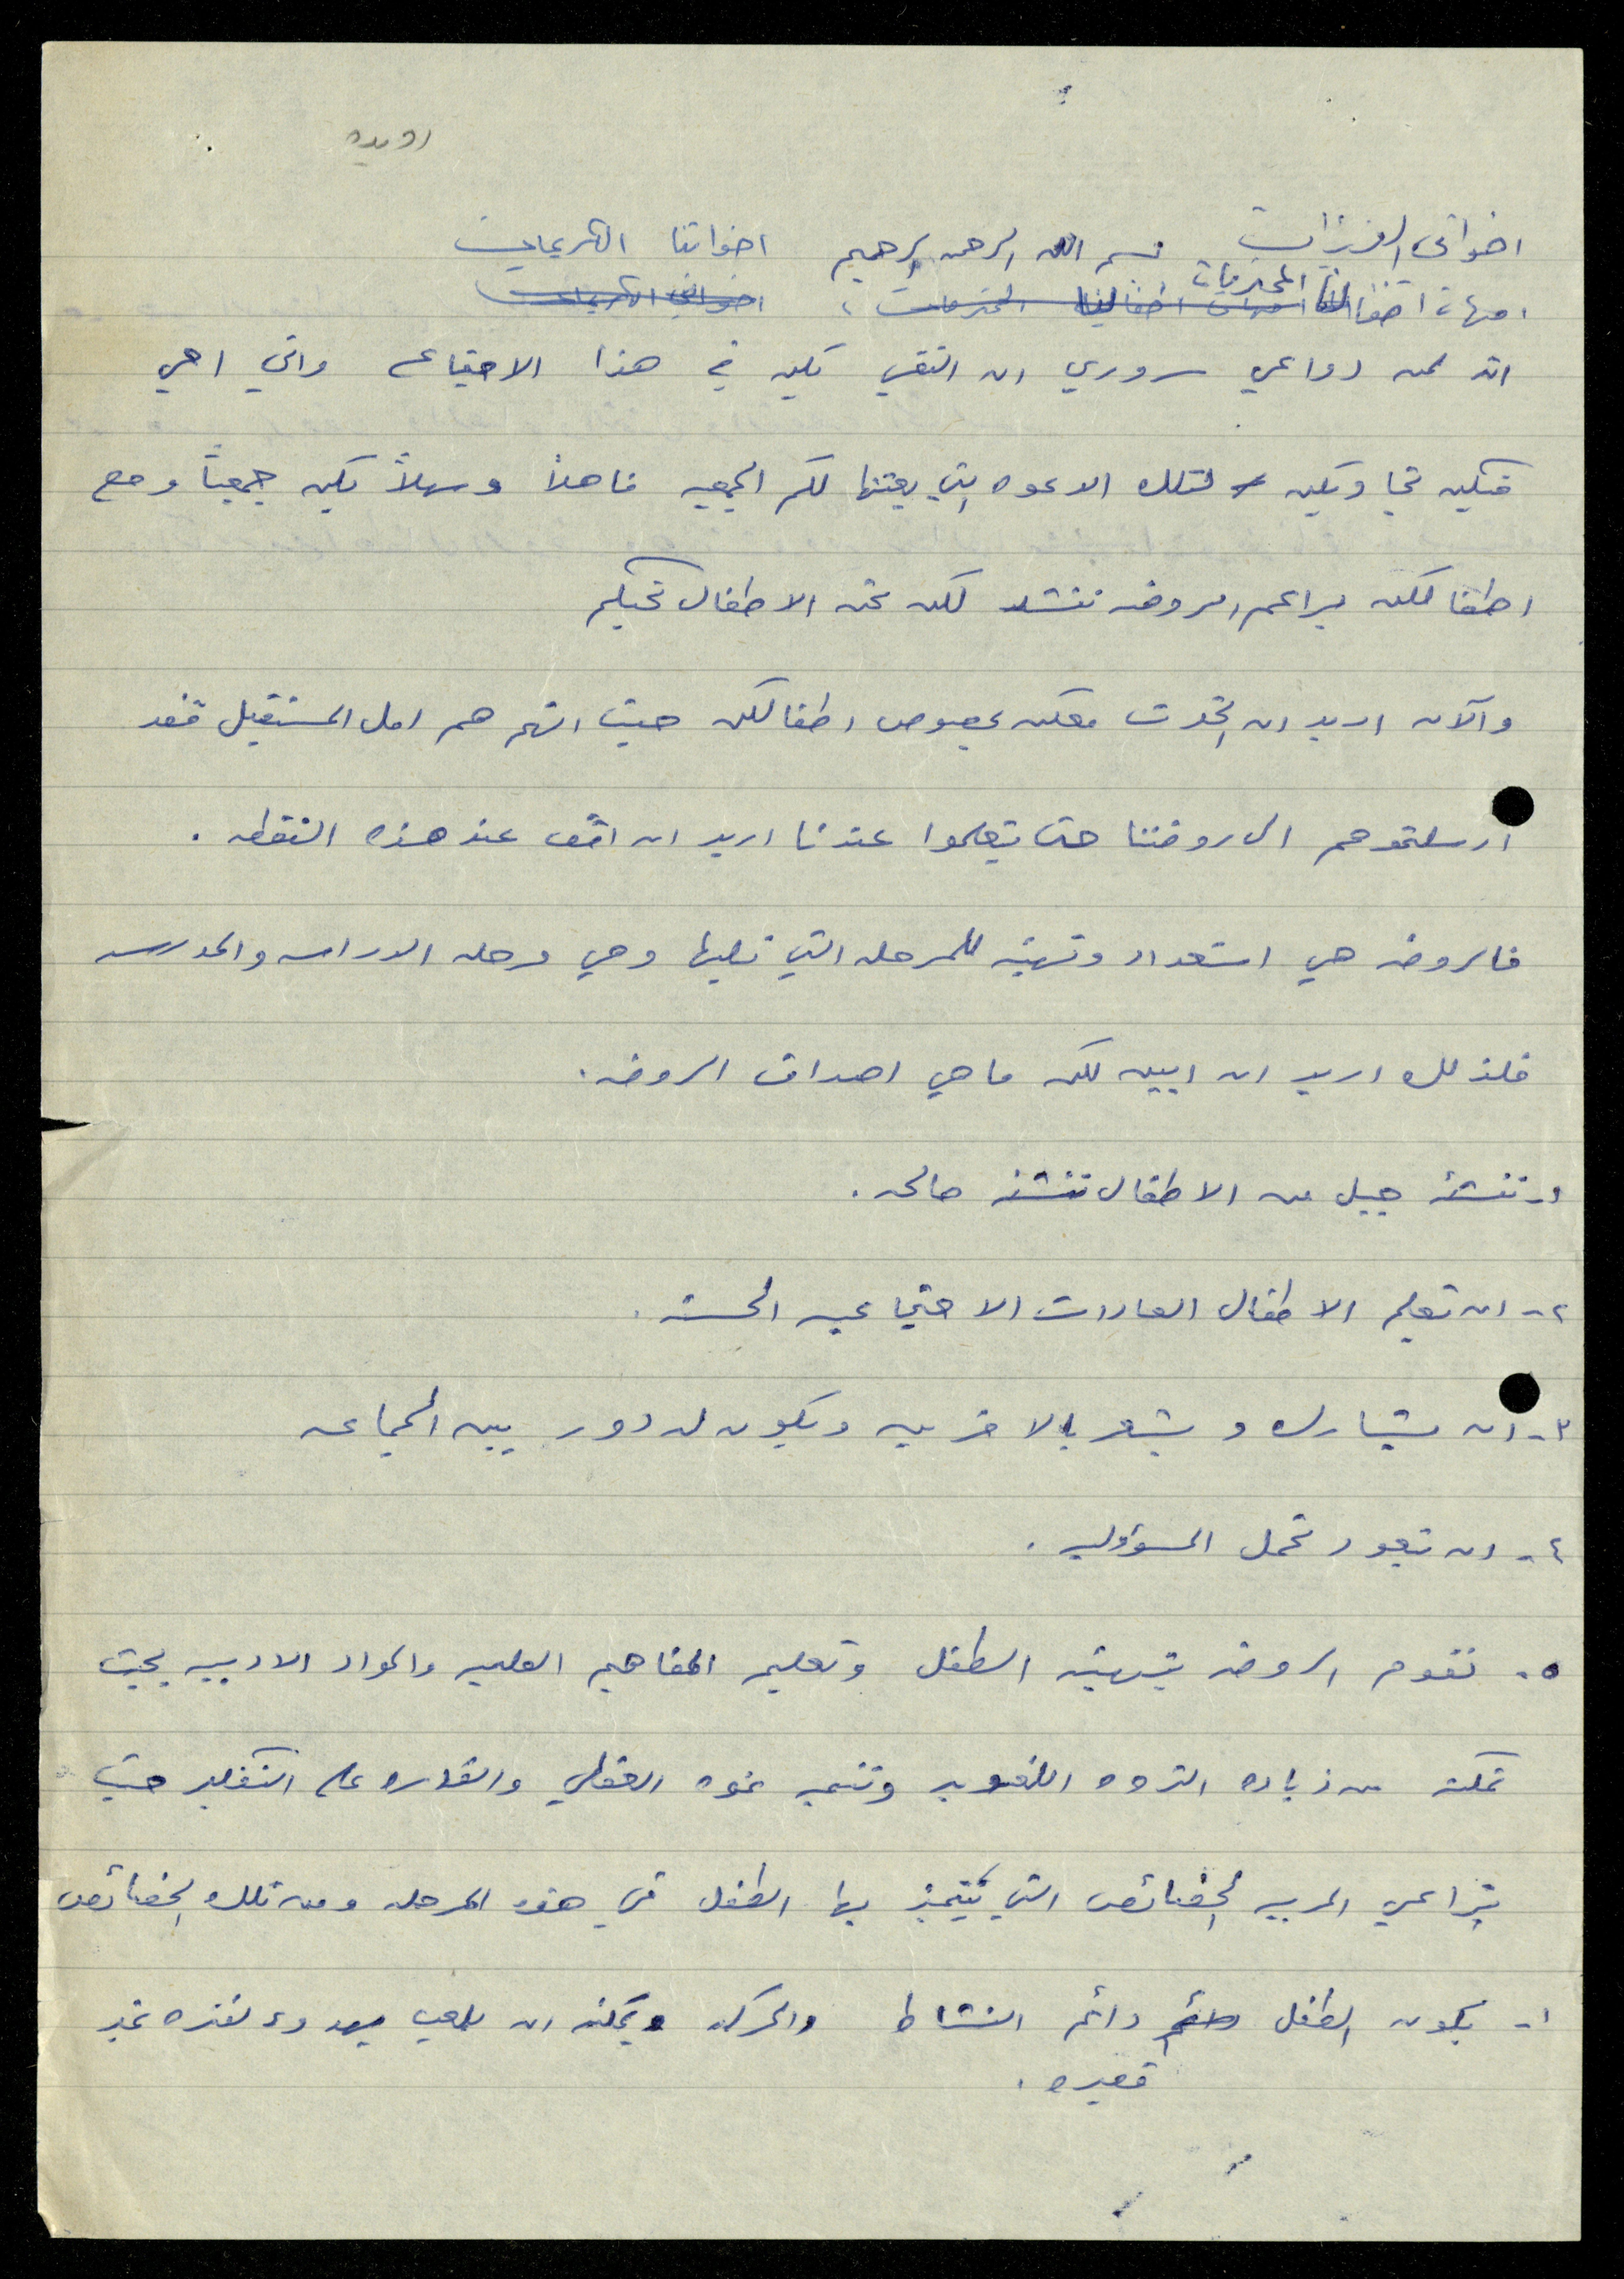 رويده
اخواتي العزيزات بسم الله الرحمن الرحيم اخواتنا الكريمات
امهات اطفالنا المحترمات امهات اطفالنا المحترمات، اخواتي الكريمات
انه لمن دواعي سروري ان التقي بكن في هذا الاجتماع واني احي
فيكن تجاوبكن لتلك الدعوه التي بعثتها لكم الجمعيه فاهلاً وسهلاً بكن جميعاً ومع
اطفالكن براعم الروضه ننشد لكن نحن الاطفال نحييكم
والآن اريد ان اتحدث معكن بخصوص اطفالكن حيث انهم هم امل المستقبل فقد
ارسلتموهم الى روضتنا حتى يتعلموا عندنا اريد ان اقف عند هذه النقطه .
فالروضه هي استعداد وتهيئه للمرحله التي تليها وهي مرحله الدراسه والمدرسه
فلذلك اريد ان ابين لكن ما هي اهداف الروضه .
١- تنشئه جيل من الاطفال تنشئه صالحه .
٢- ان تعلم الاطفال العادات الاجتماعيه الحسنه .
٣- ان يشارك ويشعر بالاخرين ويكون له دور بين الجماعه
٤- ان يتعود تحمل المسؤوليه .
٥- تقوم الروضه بتهيئه الطفل وتعليم المفاهيم العلميه والمواد الادبيه بحيث
تمكنه من زياده الثروه اللغويه وتنميه نموه العقلي والقدره على التفكير حيث
تراعي المربيه الخصائص التي يتميز بها الطفل في هذه المرحله ومن تلك الخصائص
١- يكون الطفل دائم دائم النشاط والحركه ويمكنه ان يلعب بهدوء لفتره غير
قصيره .